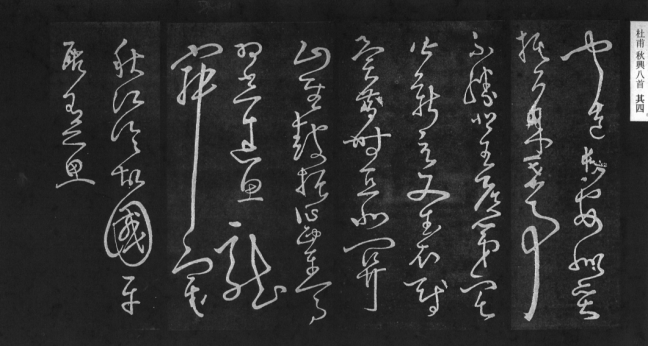 杜甫 秋興八首 其四
聞道長安似弈
棋百年世事
不勝悲王侯第宅
皆新主文武衣冠
異昔時直北關
山金鼓振征西車馬
羽書遲魚龍
寂寞
秋江冷故國平
居有所思